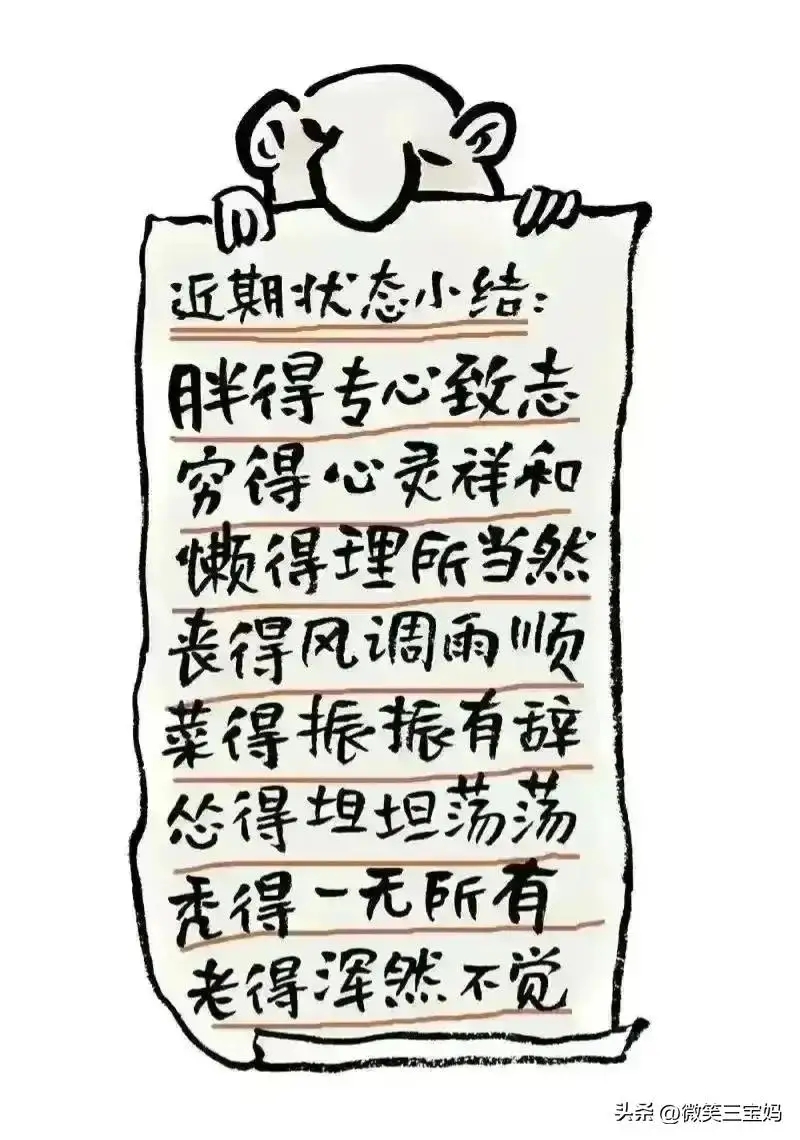 近期状态小结:
胖得专心致志
穷得心灵祥和
懒得理所当然
丧得风调雨顺
菜得振振有辞
怂得坦坦荡荡
秃得一无所有
老得浑然不觉
头条 @微笑三宝妈